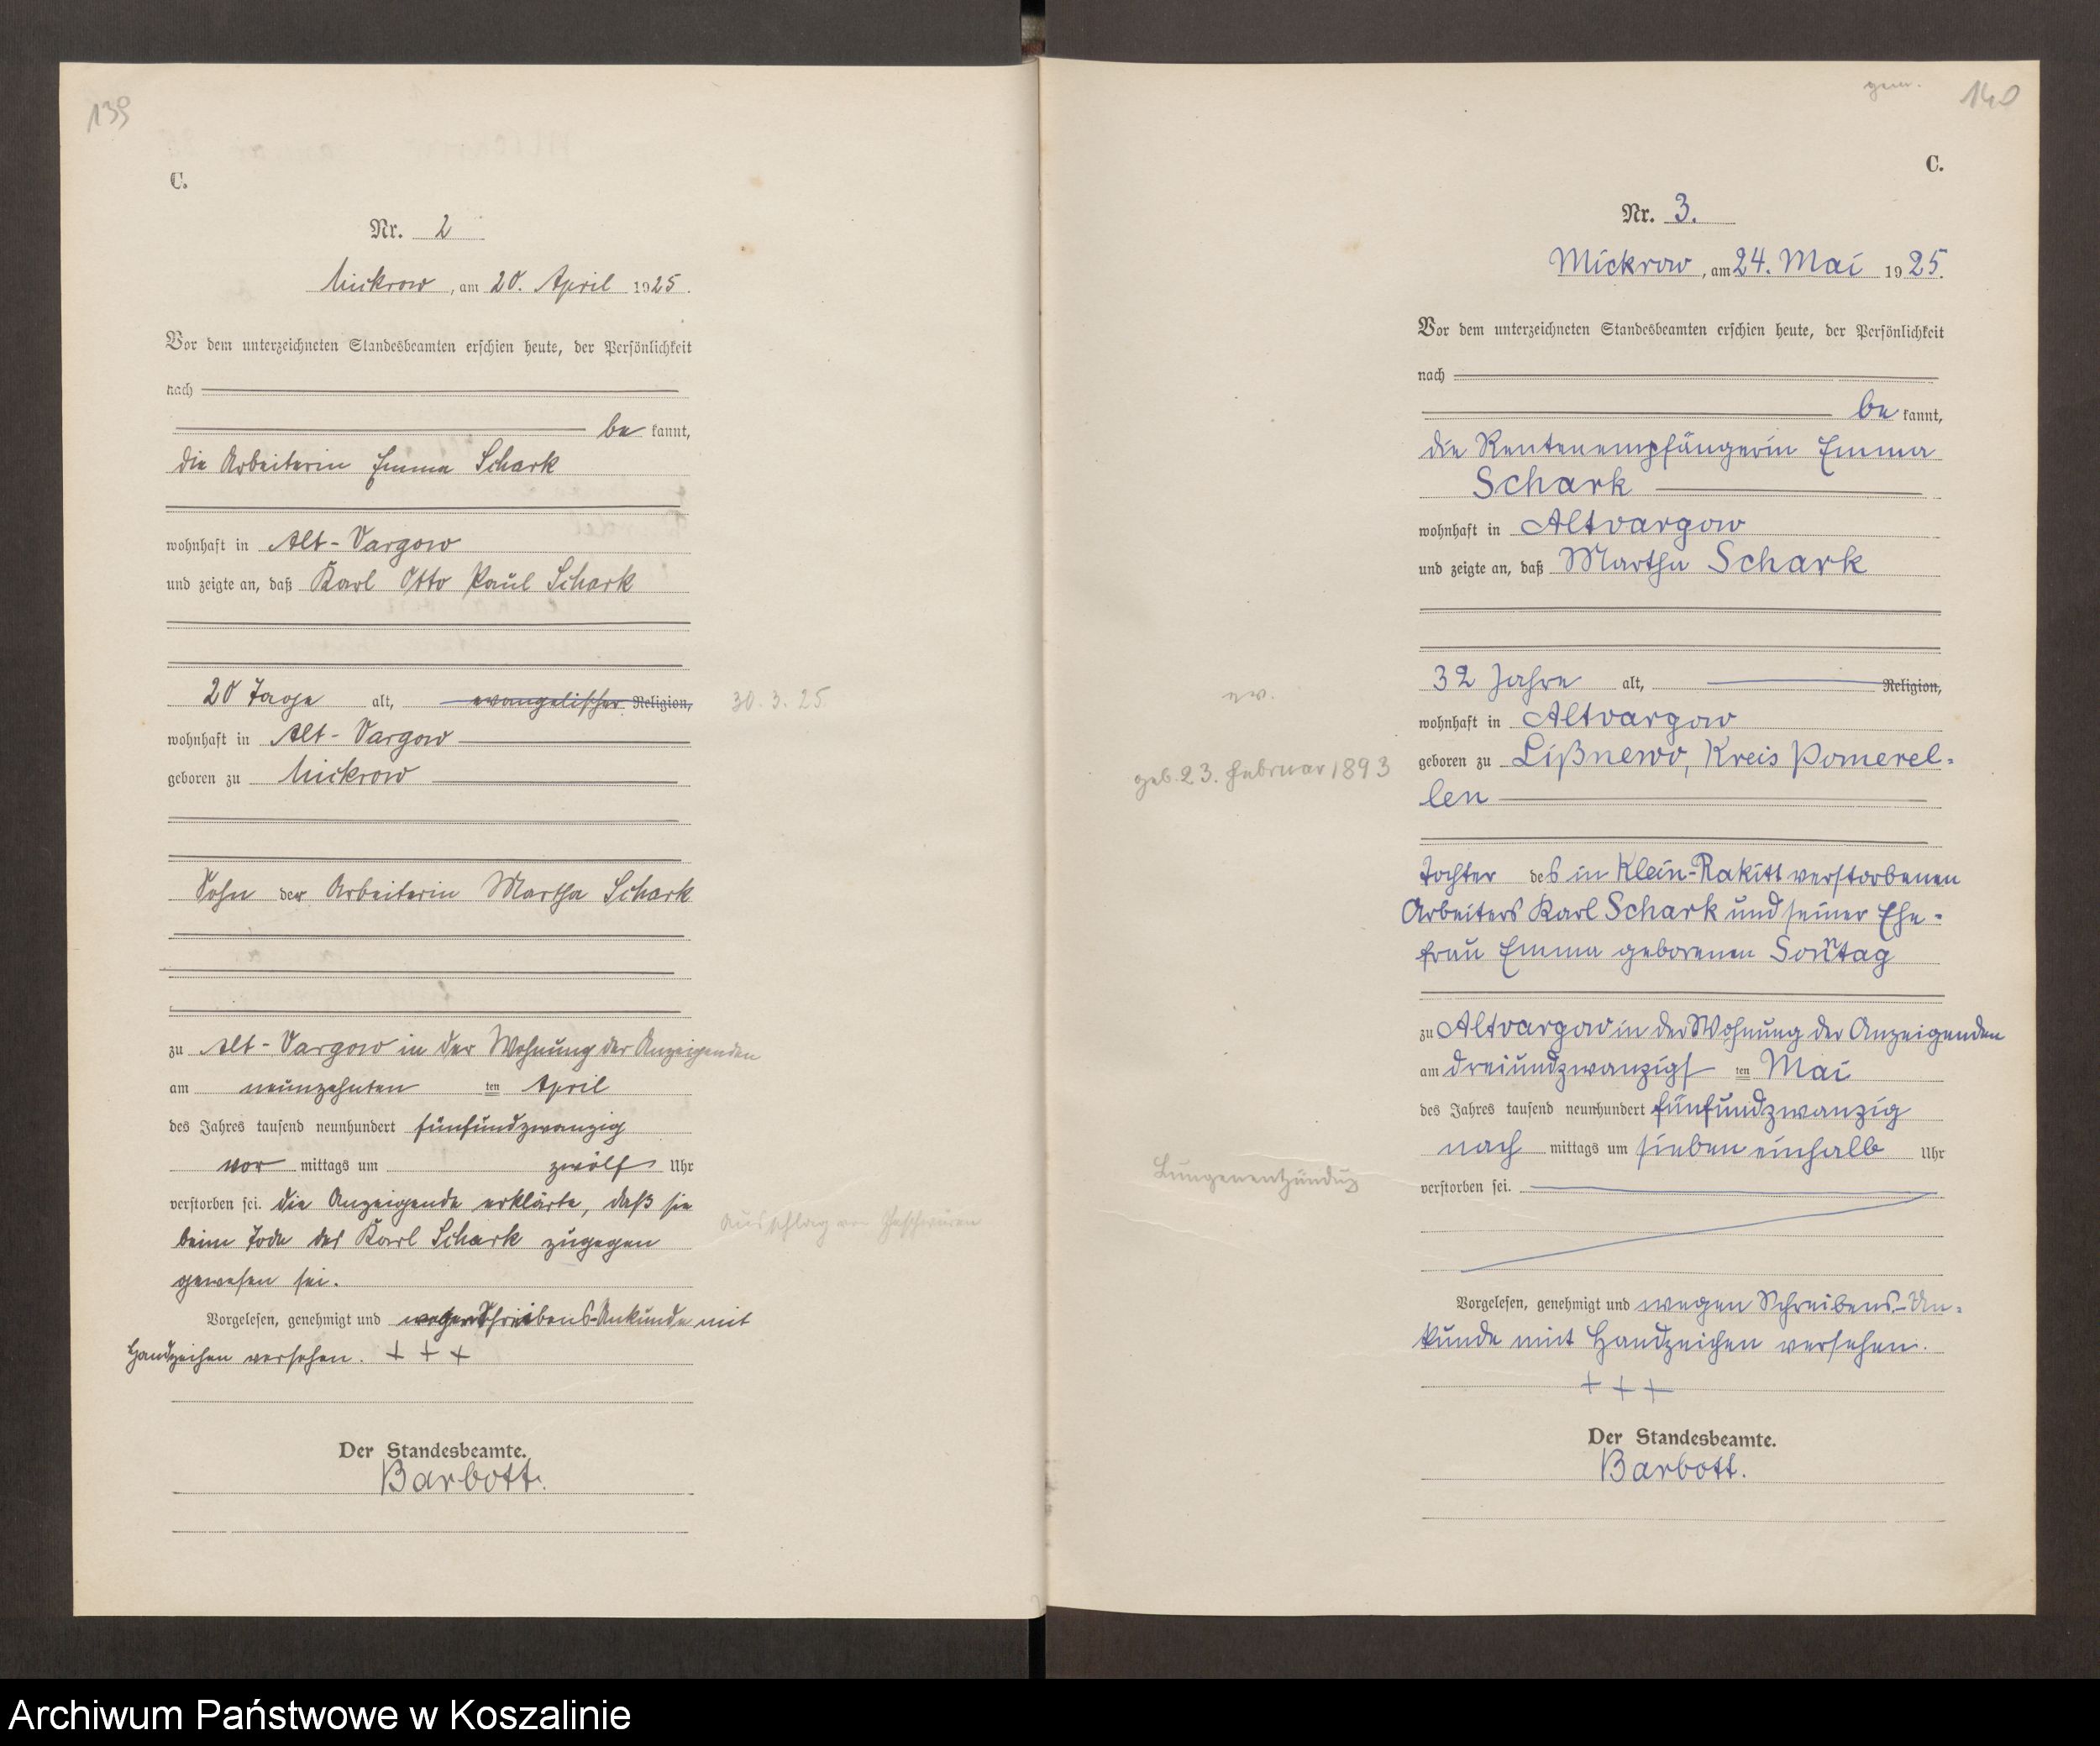 139
C.
Nr. 2
Mickrow, am 20. April 1925.
Vor dem unterzeichneten Standesbeamten erschien heute, der Persönlichkeit
nach
be kannt,
die Arbeiterin Emma Schark
wohnhaft in Alt-Vargow
und zeigte an, daß Karl Otto Paul Schark
20 Tage alt, evangelischer Religion,
30. 3. 25
wohnhaft in Alt-Vargow
geboren zu Mickrow
Sohn der Arbeiterin Martha Schark
zu Alt-Vargow in der Wohnung der Anzeigenden
am neunzehnten ten April
des Jahres tausend neunhundert fünfundzwanzig
vor mittags um zwölf Uhr
verstorben sei. Die Anzeigende erklärte, daß sie
beim Tode des Karl Schark zugegen
Ausschlag
gewesen sei.
Vorgelesen, genehmigt und wegen Schreibens-Unkunde mit
Handzeichen versehen. + + +
Der Standesbeamte.
Barbott.
gem. 140
C.
Nr. 3.
Mickrow, am 24. Mai 1925.
Vor dem unterzeichneten Standesbeamten erschien heute, der Persönlichkeit
nach
be kannt,
die Rentenempfängerin Emma
Schark
wohnhaft in Altvargow
und zeigte an, daß Martha Schark
ev.
32 Jahre alt, Religion,
wohnhaft in Altvargow
geb. 23. Februar 1893
geboren zu Lißnewo, Kreis Pomerel-
len
Tochter des in Klein-Rakitt verstorbenen
Arbeiters Karl Schark und seiner Ehe-
frau Emma geborenen Soñtag
zu Altvargow in der Wohnung der Anzeigenden
am dreiundzwanzigs ten Mai
des Jahres tausend neunhundert fünfundzwanzig
nach mittags um sieben einhalb Uhr
Lungenentzündug
verstorben sei.
Vorgelesen, genehmigt und wegen Schreibens-Un-
kunde mit Handzeichen versehen.
+ + +
Der Standesbeamte.
Barbott.
Archiwum Państwowe w Koszalinie